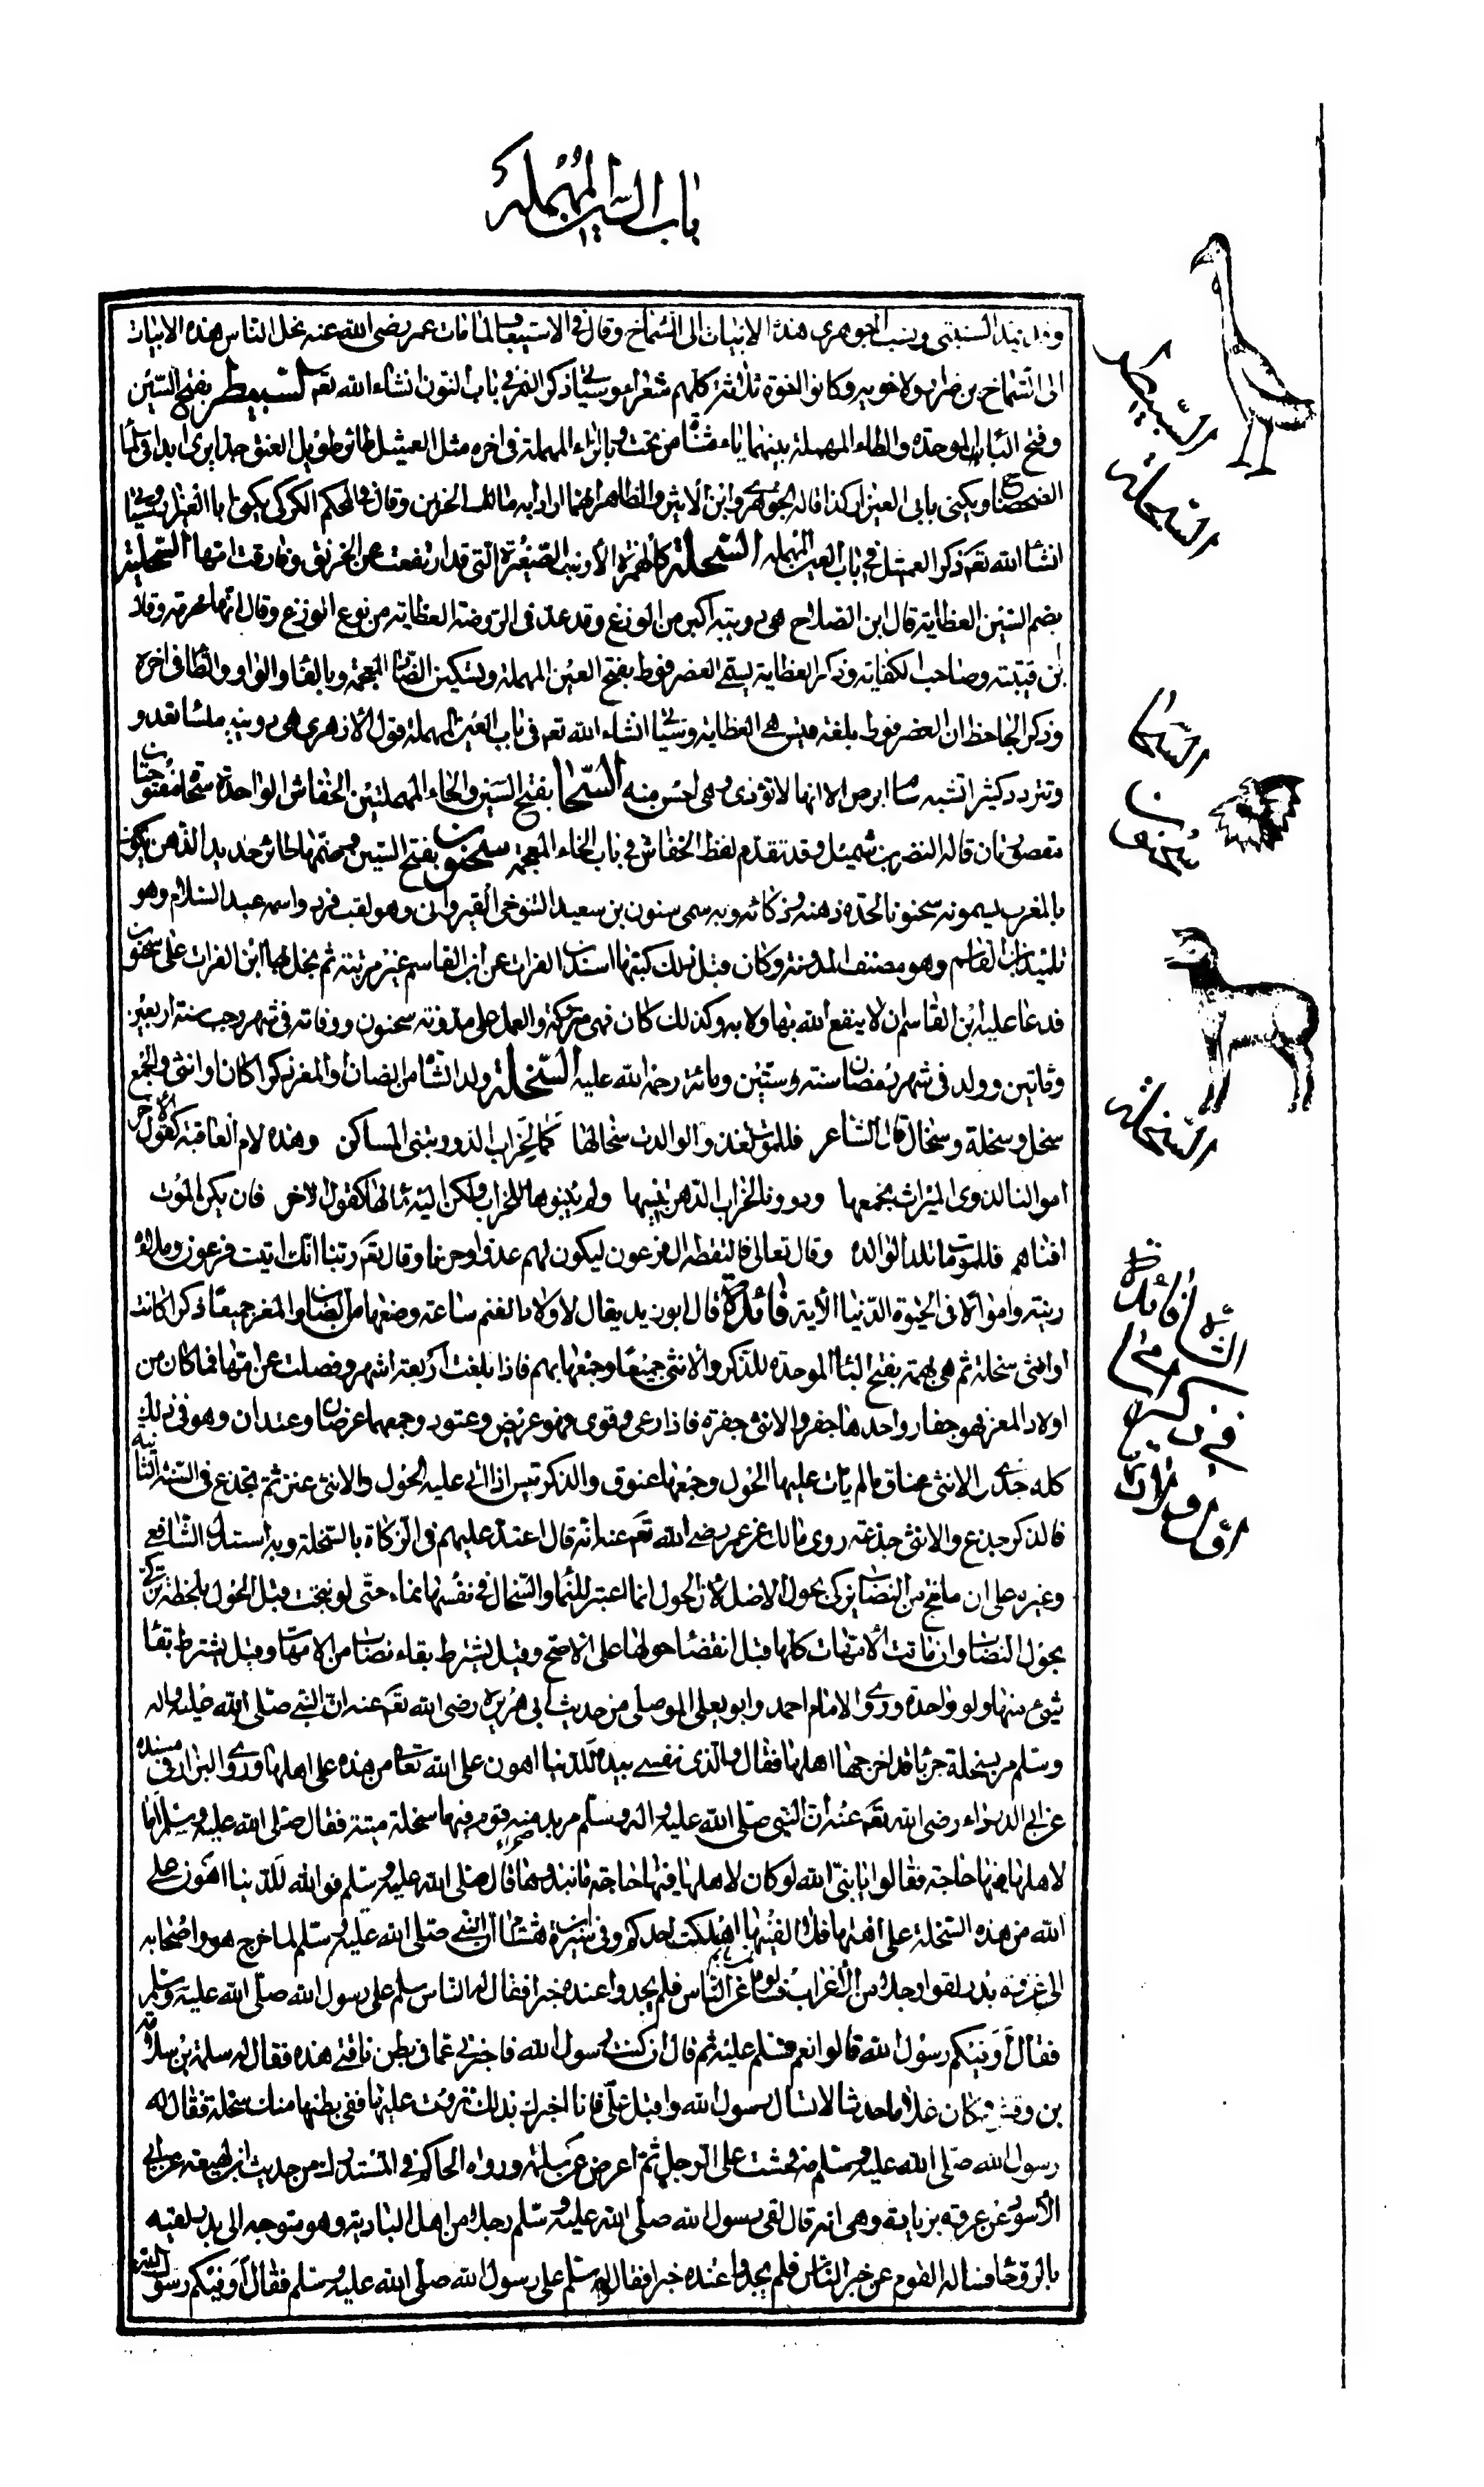 باب السين المهملة
ونسب الجوهري هذه الابيات الى الشماخ وقال في الاستيعاب لما مات عمر رضى الله عنه نحل الناس هذه الابيات
الى الشماخ بن ضرار ولاخويه وكانوا اخوة ثلاثة كلهم شعراء وسيأتي ذكر النمر في باب النون انشاء الله تعم السبيطر بفتح السين
وفتح الباء الموحدة والطاء المهملة بينهما ياء مثناة من تحت وبالراء المهملة في اخره مثل العميثل طائر طويل العنق جدا يرى ابدا في الماء
الضحضاح ويكنى بابى العيزار كذا قاله الجوهري وابن الاثير والظاهر انهما ارادا به مالك الحزين وقال في المحكم الكركي يكنى ابا العيزار وسيأتي
انشا الله تعم ذكر العميثل في باب العين المهملة السحلة كالهمزة الارنب الصغيرة التى قد ارتفعت عن الخرنق وفارقت امها السحلية
بضم السين العظاية قال ابن الصلاح هي دويبة اكبر من الوزغ وقد عد في الروضة العظاية من نوع الوزغ وقال انها محرمة وقال
ابن قتيبة وصاحب الكفاية وذكر العظاية يسمى العضرفوط بفتح العين المهملة وتسكين الضاد المعجمة وبالفاء والواو والطا في اخره
وذكر الجاحظ ان العضرفوط بلغة قيس هي العظاية وسيأتي انشاء الله تعم في باب العين المهملة قول الازهري هي دويبة ملسا تعدو
وتتردد كثيرا تشبه سام ابرص الا انها لا تؤذى وهي احسن منه السحا بفتح السين والحاء المهملتين الخفاش الواحدة سحاة مفتوحتان
مقصورتان قاله النضر بن شميل وقد تقدم لفظ الخفاش في باب الخاء المعجمة سحنون بفتح السين وضمها طائر حديد الذهن يكون
بالمغرب يسمونه سحنونا لحدة ذهنه وذكائه وبه سمى سحنون بن سعيد التنوخى القيرواني وهو لقب فرد واسمه عبد السلام وهو
تلميذ ابن القاسم وهو مصنف المدونة وكان قبل ذلك كتبها اسد بن الفرات عن ابن القاسم غير مرتبة ثم بخل بها ابن الفرات على سحنون
فدعا عليه ابن القاسم ان لا ينفع الله بها ولا به وكذلك كان فهى متروكة والعمل على مدونة سحنون ووفاته في شهر رجب سنة اربعين
وماتين وولد في شهر رمضان سنة وستين ومائة رحمة الله عليه السخلة ولد الشاة من الضان او المعز ذكرا كان او انثى والجمع
سخل وسخلة وسخال قال الشاعر فللموت تغذو الوالدات سخالها كما لخراب الدور تبنى المساكن وهذه لام العاقبة كقول الاخر
اموالنا لذوى الميراث نجمعها ودورنا لخراب الدهر نبنيها ولم يبنوها للخراب ولكن اليه مالها كقول الاخر فان يكن الموت
افناهم فللموت ما تلد الوالدة وقال تعالى فالتقطه ال فرعون ليكون لهم عدوا وحزنا وقال تعم ربنا انك اتيت فرعون وملاه
زينة واموالا في الحيوة الدنيا الاية فائدة قال ابو زيد يقال لاولاد الغنم ساعة وضعها من الضان والمعز جميعا ذكرا كانت
او انثى سخلة ثم هي بهمة بفتح الباء الموحدة للذكر والانثى جميعا وجمعها بهم فاذا بلغت اربعة اشهر وفصلت عن امها فما كان من
اولاد المعز فهو جفار واحدها جفر والانثى جفرة فاذا رعى وقوى فهو عريض وعتود وجمعهما عرضان وعتدان وهو في ذلك
كله جدى والانثى عناق ما لم يات عليها الحول وجمعها عنوق والذكر تيس اذا اتى عليه الحول والانثى عنز ثم تجذع في السنة الثانية
فالذكر جذع والانثى جذعة روى مالك عن عمر رضى الله تعم عنه انه قال اعتد عليهم في الزكاة بالسخلة وبه استدل الشافعى
وغيره على ان ما نتج من النصاب يزكى بحول الاصل لان الحول انما اعتبر للنما والسخال في نفسها نماء حتى لو نتجت قبل الحول بلحظة تزكى
بحول النصاب وان ماتت الامهات كلها قبل انقضا حولها على الاصح وقيل يشترط بقاء نصاب من الامهات وقيل يشترط بقا
شيئ منها ولو واحدة وروى الامام احمد وابو يعلى الموصلى من حديث ابى هريرة رضى الله تعم عنه ان النبي صلى الله عليه واله
وسلم مر بسخلة جربا قد اخرجها اهلها فقال والذى نفسي بيده للدنيا اهون على الله تعا من هذه على اهلها وروى البزار في مسنده
عن ابي الدرداء رضى الله تعم عنه ان النبي صلى الله عليه واله وسلم مر بدمنة قوم فيها سخلة ميتة فقال صلى الله عليه وسلم اما
لاهلها فيها حاجة فقالوا يا نبى الله لو كان لاهلها فيها حاجة ما نبذوها قال صلى الله عليه وسلم فوالله للدنيا اهون على
الله من هذه السخلة على اهلها فلا الفينها اهلكت احدكم وفي سيرة ابن هشام ان النبي صلى الله عليه وسلم لما خرج هو واصحابه
الى غزوة بدر لقوا رجلا من الاعراب فسالوه عن الناس فلم يجدوا عنده خبرا فقال له الناس سلم على رسول الله صلى الله عليه وسلم
فقال اوفيكم رسول الله قالوا نعم فسلم عليه ثم قال ان كنت رسول الله فاخبرني عما في بطن ناقتي هذه فقال له سلمة بن سلامة
بن وقش وكان غلاما حدثا لا تسال رسول الله واقبل علي فانا اخبرك بذلك نزوت عليها ففي بطنها منك سخلة فقال له
رسول الله صلى الله عليه وسلم مه فحشت على الرجل ثم اعرض عن سلمة ورواه الحاكم في المستدرك من حديث ابن لهيعة عن ابي
الاسود عن عروة بزيادة وهى انه قال لقى رسول الله صلى الله عليه وسلم رجلا من اهل البادية وهو متوجه الى بدر لقيه
بالروحا فساله القوم عن خبر الناس فلم يجدوا عنده خبرا فقالوا له سلم على رسول الله صلى الله عليه وسلم فقال اوفيكم رسول الله
السبيطر
السحلة
السحا
سحنون
السخلة
فائدة